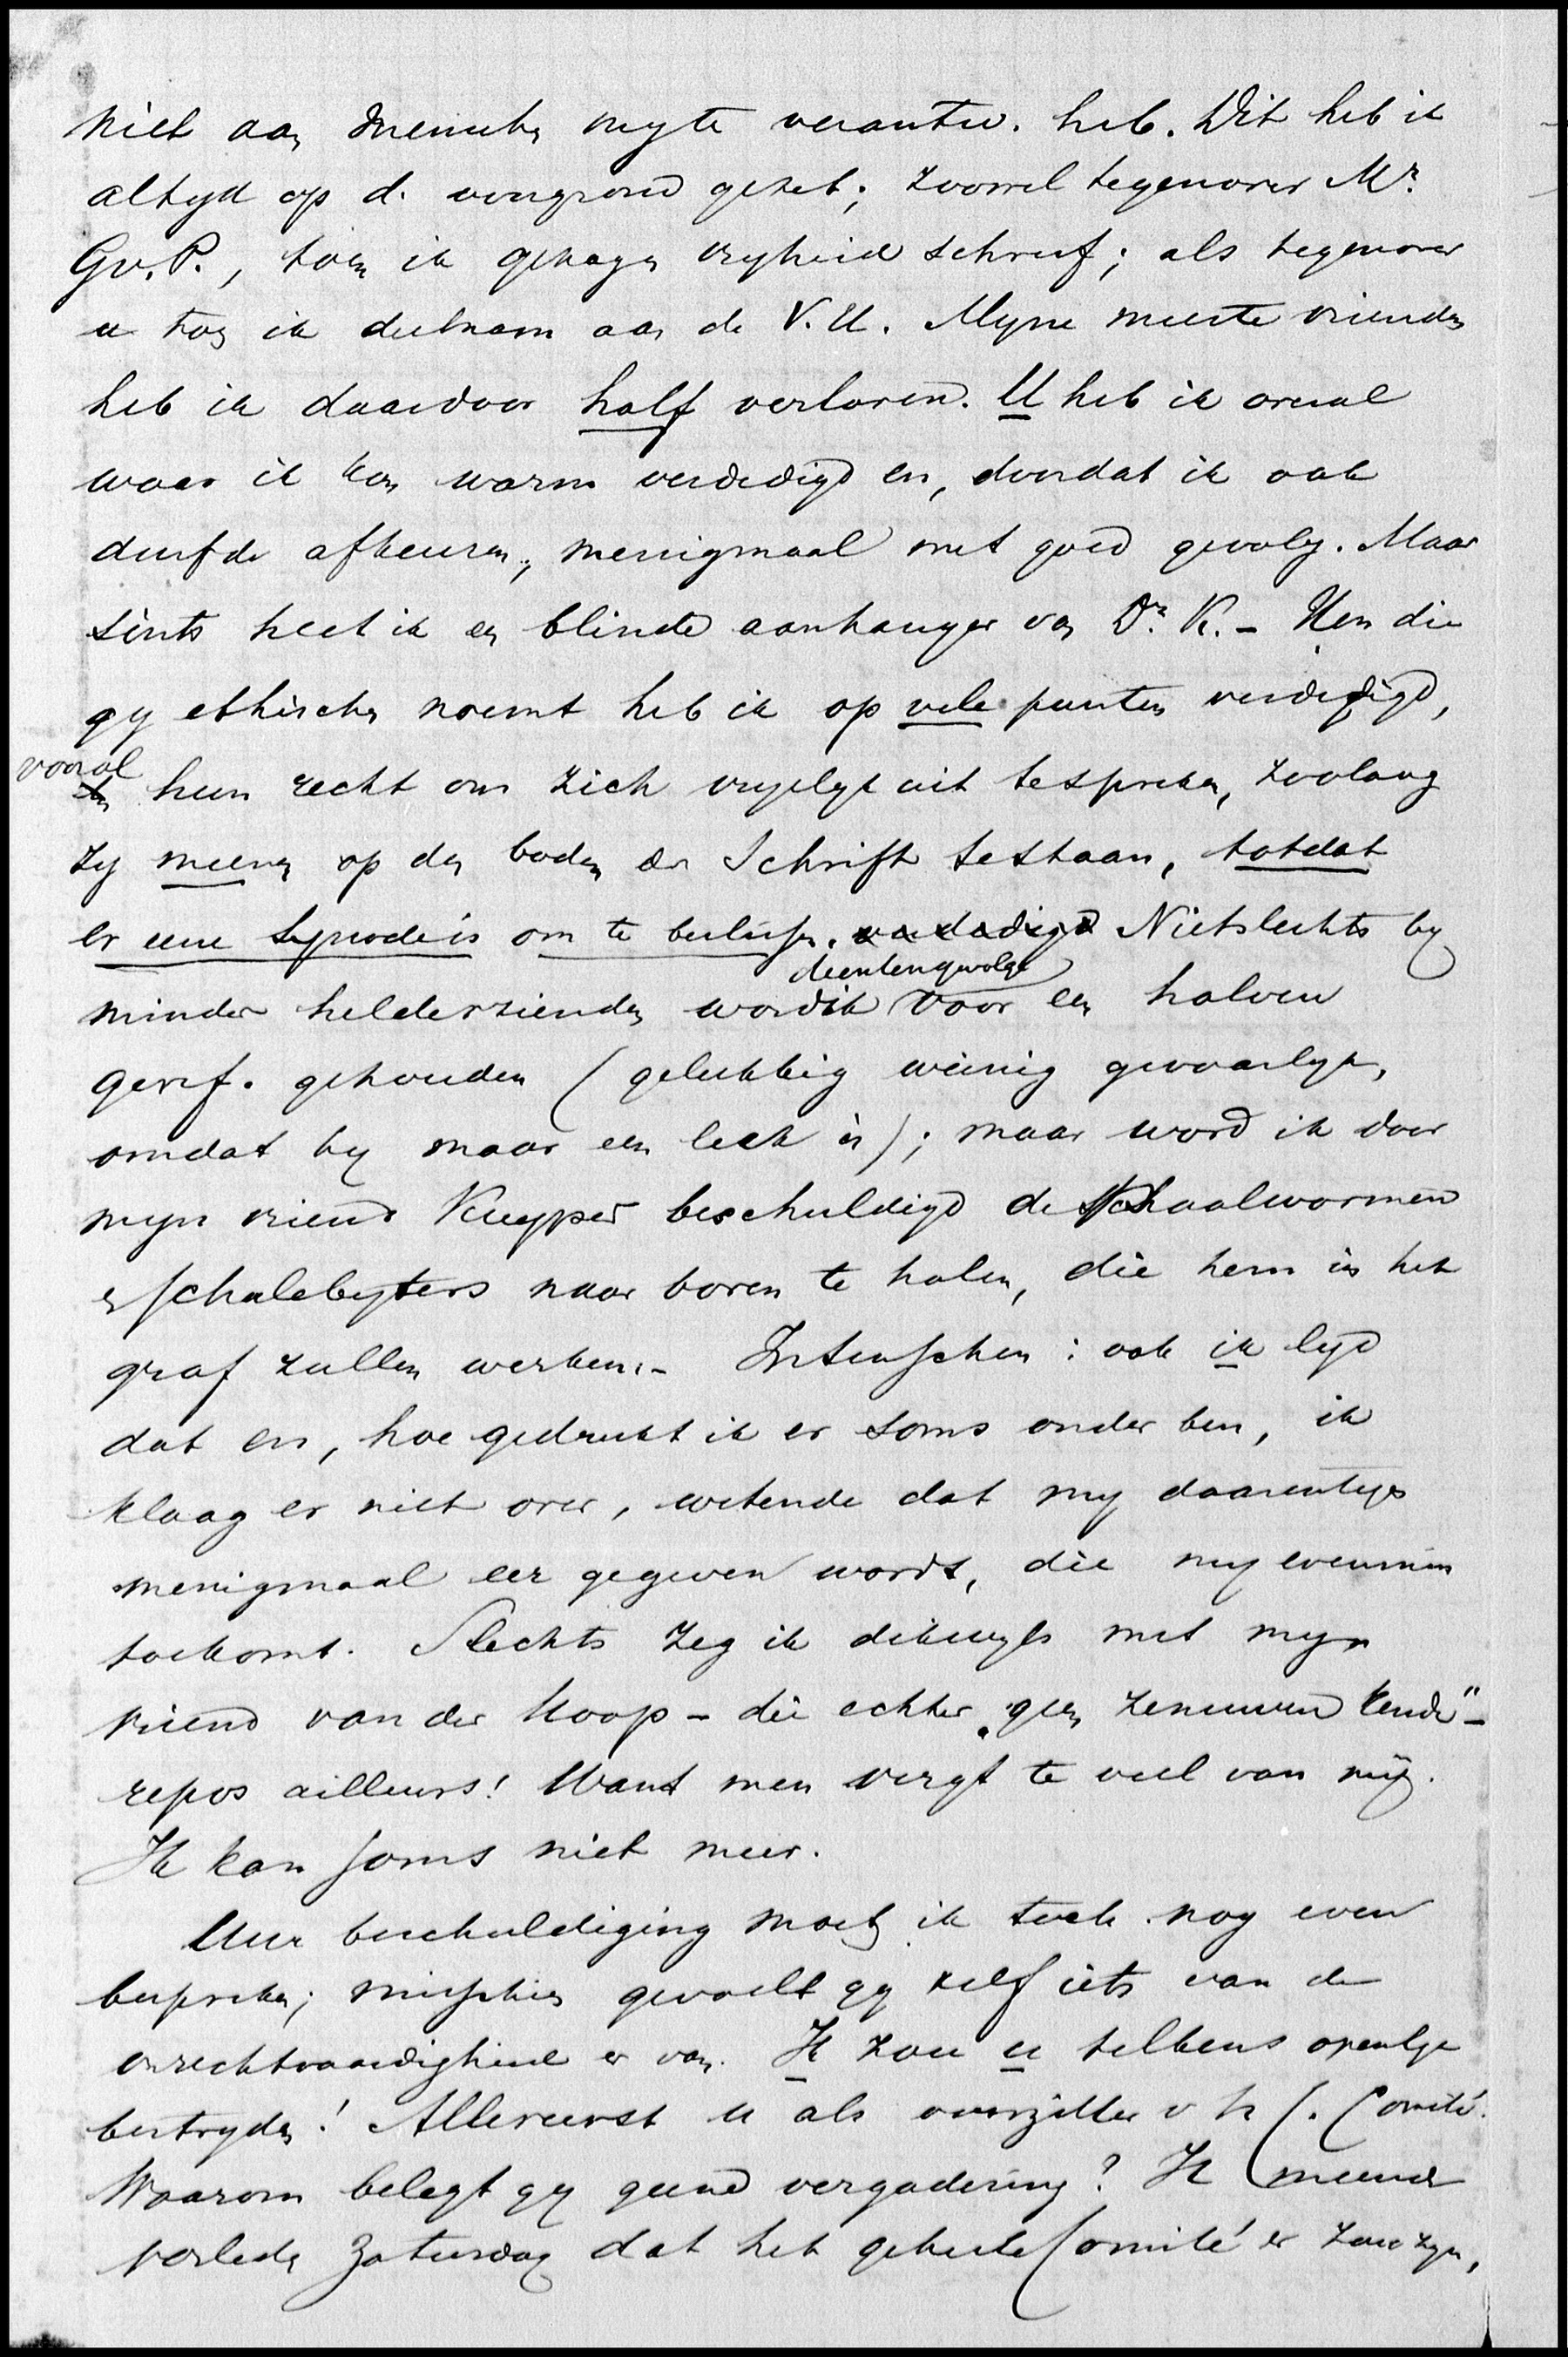 niet aan menschen my te verantw. heb. Dit heb ik
altyd op d. voorgrond gezet; zoowel tegenover Mr.
Gr. v. P., toen ik gehagen vryheid schreef; als tegenover
u toen ik deelnam aan de V.U. Myne meeste vrienden
heb ik daardoor half verloren. U heb ik overal
waar ik kon warm verdedigd en, doordat ik ook
durfde afkeuren, menigmaal met goed gevolg. Maar
sints heet ik een blinde aanhanger van Dr. K. – Hen die
gy ethischen noemt heb ik op vele punten verdedigd,
vooral hun recht om zich vryelyk uit te spreken, zoolang
zy meenen op den bodem der Schrift te staan, totdat
er eene Synode is om te beslissen. verdedigd Niet slechts by
minder helderzienden word ik dientengevolge voor een halven
geref. gehouden (gelukkig weinig gevaarlyk,
omdat hy maar een leek is); maar word ik door
myn vriend Kuyper beschuldigd de schaalwormen
en schalebyters naar boven te halen, die hem in het
graf zullen werken. – Intusschen: ook ik lyd
dat en, hoe gedrukt ik er soms onder ben, ik
klaag er niet over, wetende dat my daarentegen
menigmaal eer gegeven wordt, die my evenmin
toekomt. Slechts zeg ik dikwyls met myn
vriend van der Hoop – die echter "geen zenuwen kende" –
repos ailleurs! Want men vergt te veel van my.
Ik kan soms niet meer.
Uwe beschuldiging moet ik toch nog even
bespreken; misschien gevoelt gy zelf iets van de
onrechtvaardigheid er van. Ik zou u telkens openlyk
bestryden! Allereerst u als voorzitter v h C. Comité.
Waarom belegt gy geene vergadering? Ik meende
verleden Zaturdag dat het geheele Comité er zou zyn,